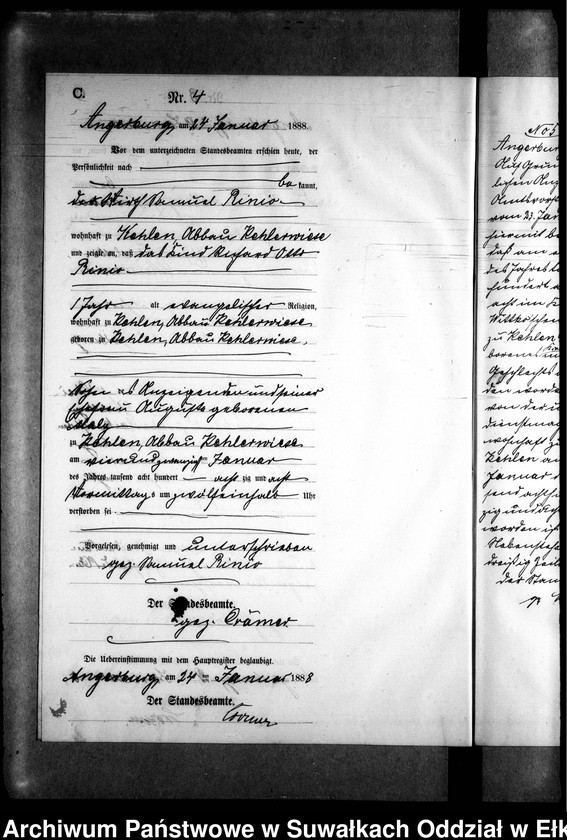 C.
Nr. 4
Angerburg, am 24 Januar 1888.
Vor dem unterzeichneten Standesbeamten erschien heute, der
Persönlichkeit nach
be kannt,
der Wirth Samuel Rinio
wohnhaft zu Kehlen, Abbau Kehlerwiese
und zeigte an, daß das Kind Richard Otto
Rinio
1 Jahr alt evangelischer Religion,
wohnhaft zu Kehlen, Abbau Kehlerwiese,
geboren zu Kehlen, Abbau Kehlerwiese,
Sohn des Anzeigenden und seiner
Ehefrau Auguste geborenen
zu Kehlen, Abbau Kehlerwiese
am vier und zwanzigsten Januar
des Jahres tausend acht hundert acht zig und acht
Vormittags um zwölfeinhalb Uhr
verstorben sei
Vorgelesen, genehmigt und unterschrieben
gez. Samuel Rinio
Der Standesbeamte.
gez. Crämer
Die Uebereinstimmung mit dem Hauptregister beglaubigt.
Angerburg, am 24 ten Januar 1888
Der Standesbeamte.
No 5
Angerburg
Auf Grun
lichen Anz
Amtsvorst
vom 23. Jan
hiermit be
daß am
des Jahres ta
hundert
acht im
zu Kehlen
borenen
Geschlechts
den worde
von der
dienstma
wohnhaft z
Kehlen an
Januar
send achth
zig und ach
worden is
Nebensteh
dreißig Zeile
der Stan
Archiwum Państwowe w Suwałkach Oddział w Ełk